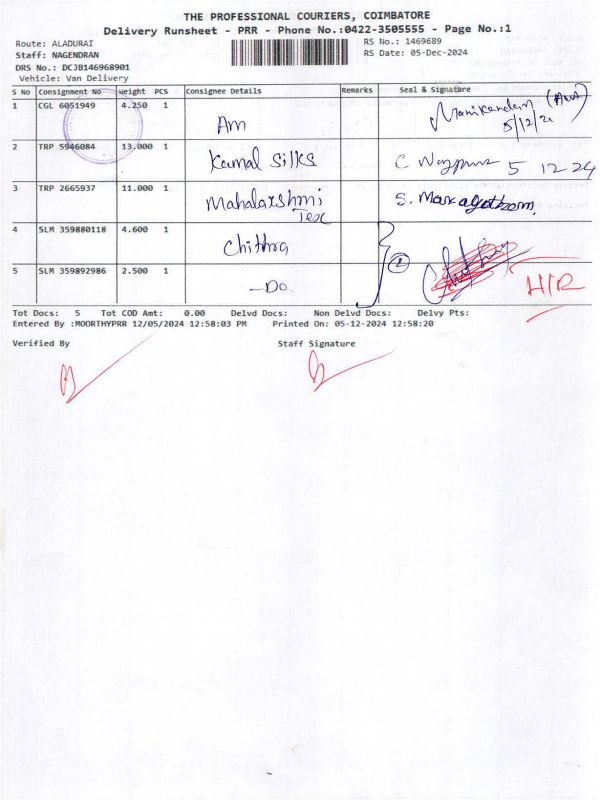 THE PROFESSIONAL COURIERS, COIMBATORE
Delivery Runsheet - PRR - Phone No.:0422-3505555 - Page No.:1
Route: ALADURAI
RS No.: 1469689
Staff: NAGENDRAN
RS Date: 05-Dec-2024
DRS No.: DCJB146968901
Vehicle: Van Delivery
S No Consignment No Weight PCS Consignee Details Remarks Seal & Signature
1 CGL 6051949 4.250 1 Am Manikandan
5/12/2
2 TRP 5946084 13.000 1 Kamal Silks C 5 12 24
3 TRP 2665937 11.000 1 Mahalakshmi Tex S.
4 SLM 359880118 4.600 1 Chithra
5 SLM 359892986 2.500 1 -Do 2 H/R
Tot Docs: 5 Tot COD Amt: 0.00 Delvd Docs: Non Delvd Docs: Delvy Pts:
Entered By :MOORTHYPRR 12/05/2024 12:58:03 PM Printed On: 05-12-2024 12:58:20
Verified By Staff Signature